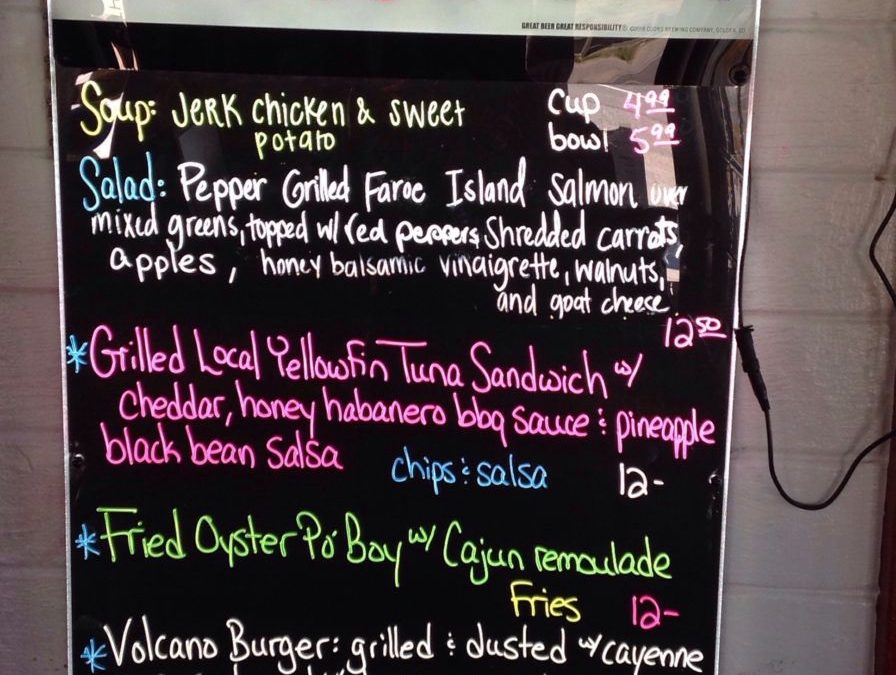 GREAT BEER GREAT RESPONSIBILITY
COORS BREWING COMPANY, GOLDEN, CO
Soup: Jerk chicken & sweet potato
Cup 4.99
bowl 5.99
Salad: Pepper Grilled Faroe Island Salmon over
mixed greens, topped w/ red peppers, shredded carrots,
apples, honey balsamic vinaigrette, walnuts,
and goat cheese
12.50
*Grilled Local Yellowfin Tuna Sandwich w/
cheddar, honey habanero bbq sauce & pineapple
black bean salsa
chips & salsa 12-
*Fried Oyster Po' Boy w/ Cajun remoulade
Fries 12-
*Volcano Burger: grilled & dusted w/ cayenne